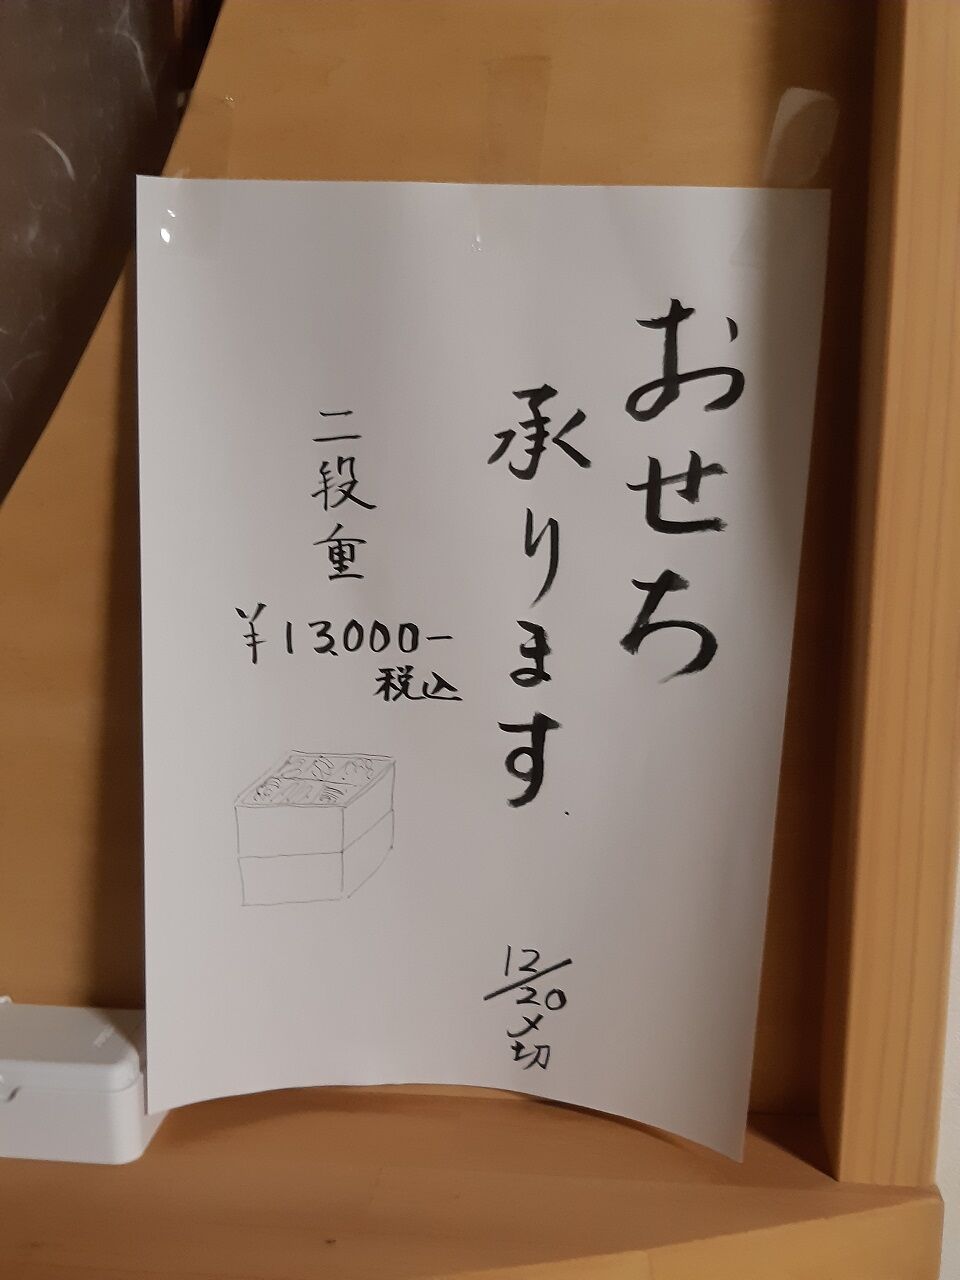 おせち
承ります
二段重
¥13,000-
税込
12/20
〆切